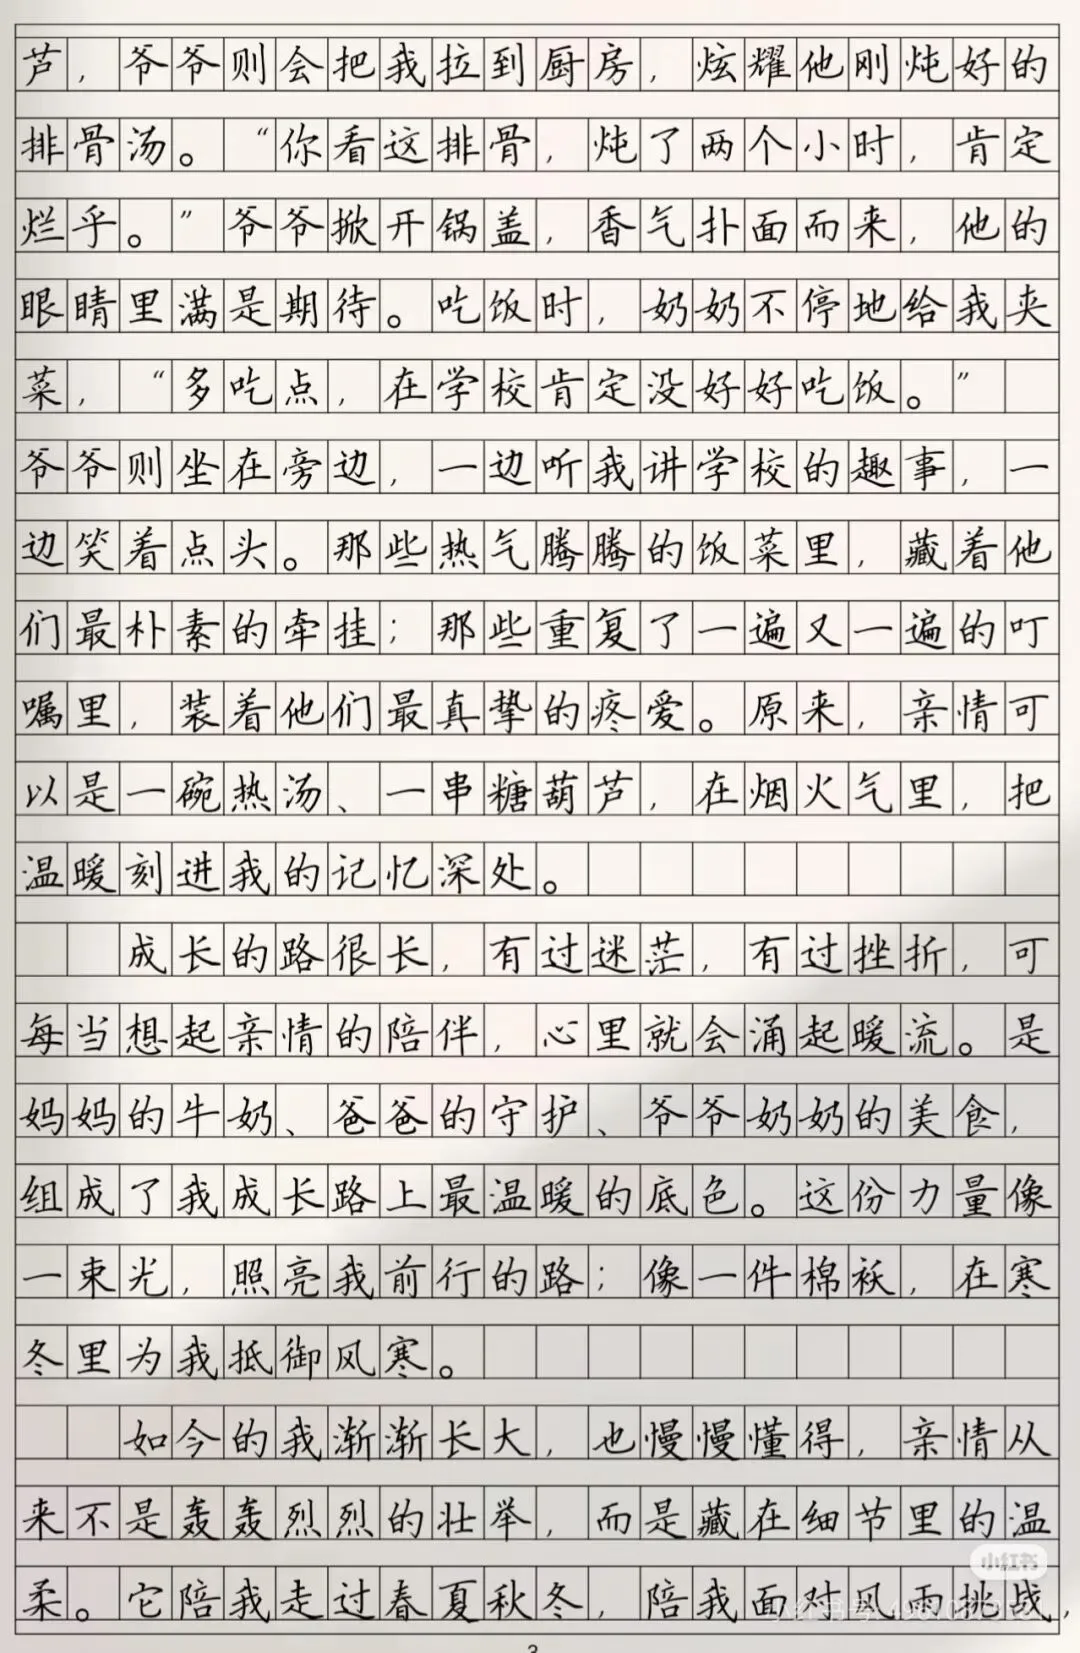 芦，爷爷则会把我拉到厨房，炫耀他刚炖好的
排骨汤。“你看这排骨，炖了两个小时，肯定
烂乎。”爷爷掀开锅盖，香气扑面而来，他的
眼睛里满是期待。吃饭时，奶奶不停地给我夹
菜，“多吃点，在学校肯定没好好吃饭。”
爷爷则坐在旁边，一边听我讲学校的趣事，一
边笑着点头。那些热气腾腾的饭菜里，藏着他
们最朴素的牵挂；那些重复了一遍又一遍的叮
嘱里，装着他们最真挚的疼爱。原来，亲情可
以是一碗热汤、一串糖葫芦，在烟火气里，把
温暖刻进我的记忆深处。
成长的路很长，有过迷茫，有过挫折，可
每当想起亲情的陪伴，心里就会涌起暖流。是
妈妈的牛奶、爸爸的守护、爷爷奶奶的美食，
组成了我成长路上最温暖的底色。这份力量像
一束光，照亮我前行的路；像一件棉袄，在寒
冬里为我抵御风寒。
如今的我渐渐长大，也慢慢懂得，亲情从
来不是轰轰烈烈的壮举，而是藏在细节里的温
柔。它陪我走过春夏秋冬，陪我面对风雨挑战，
小红书
小红书号:
3